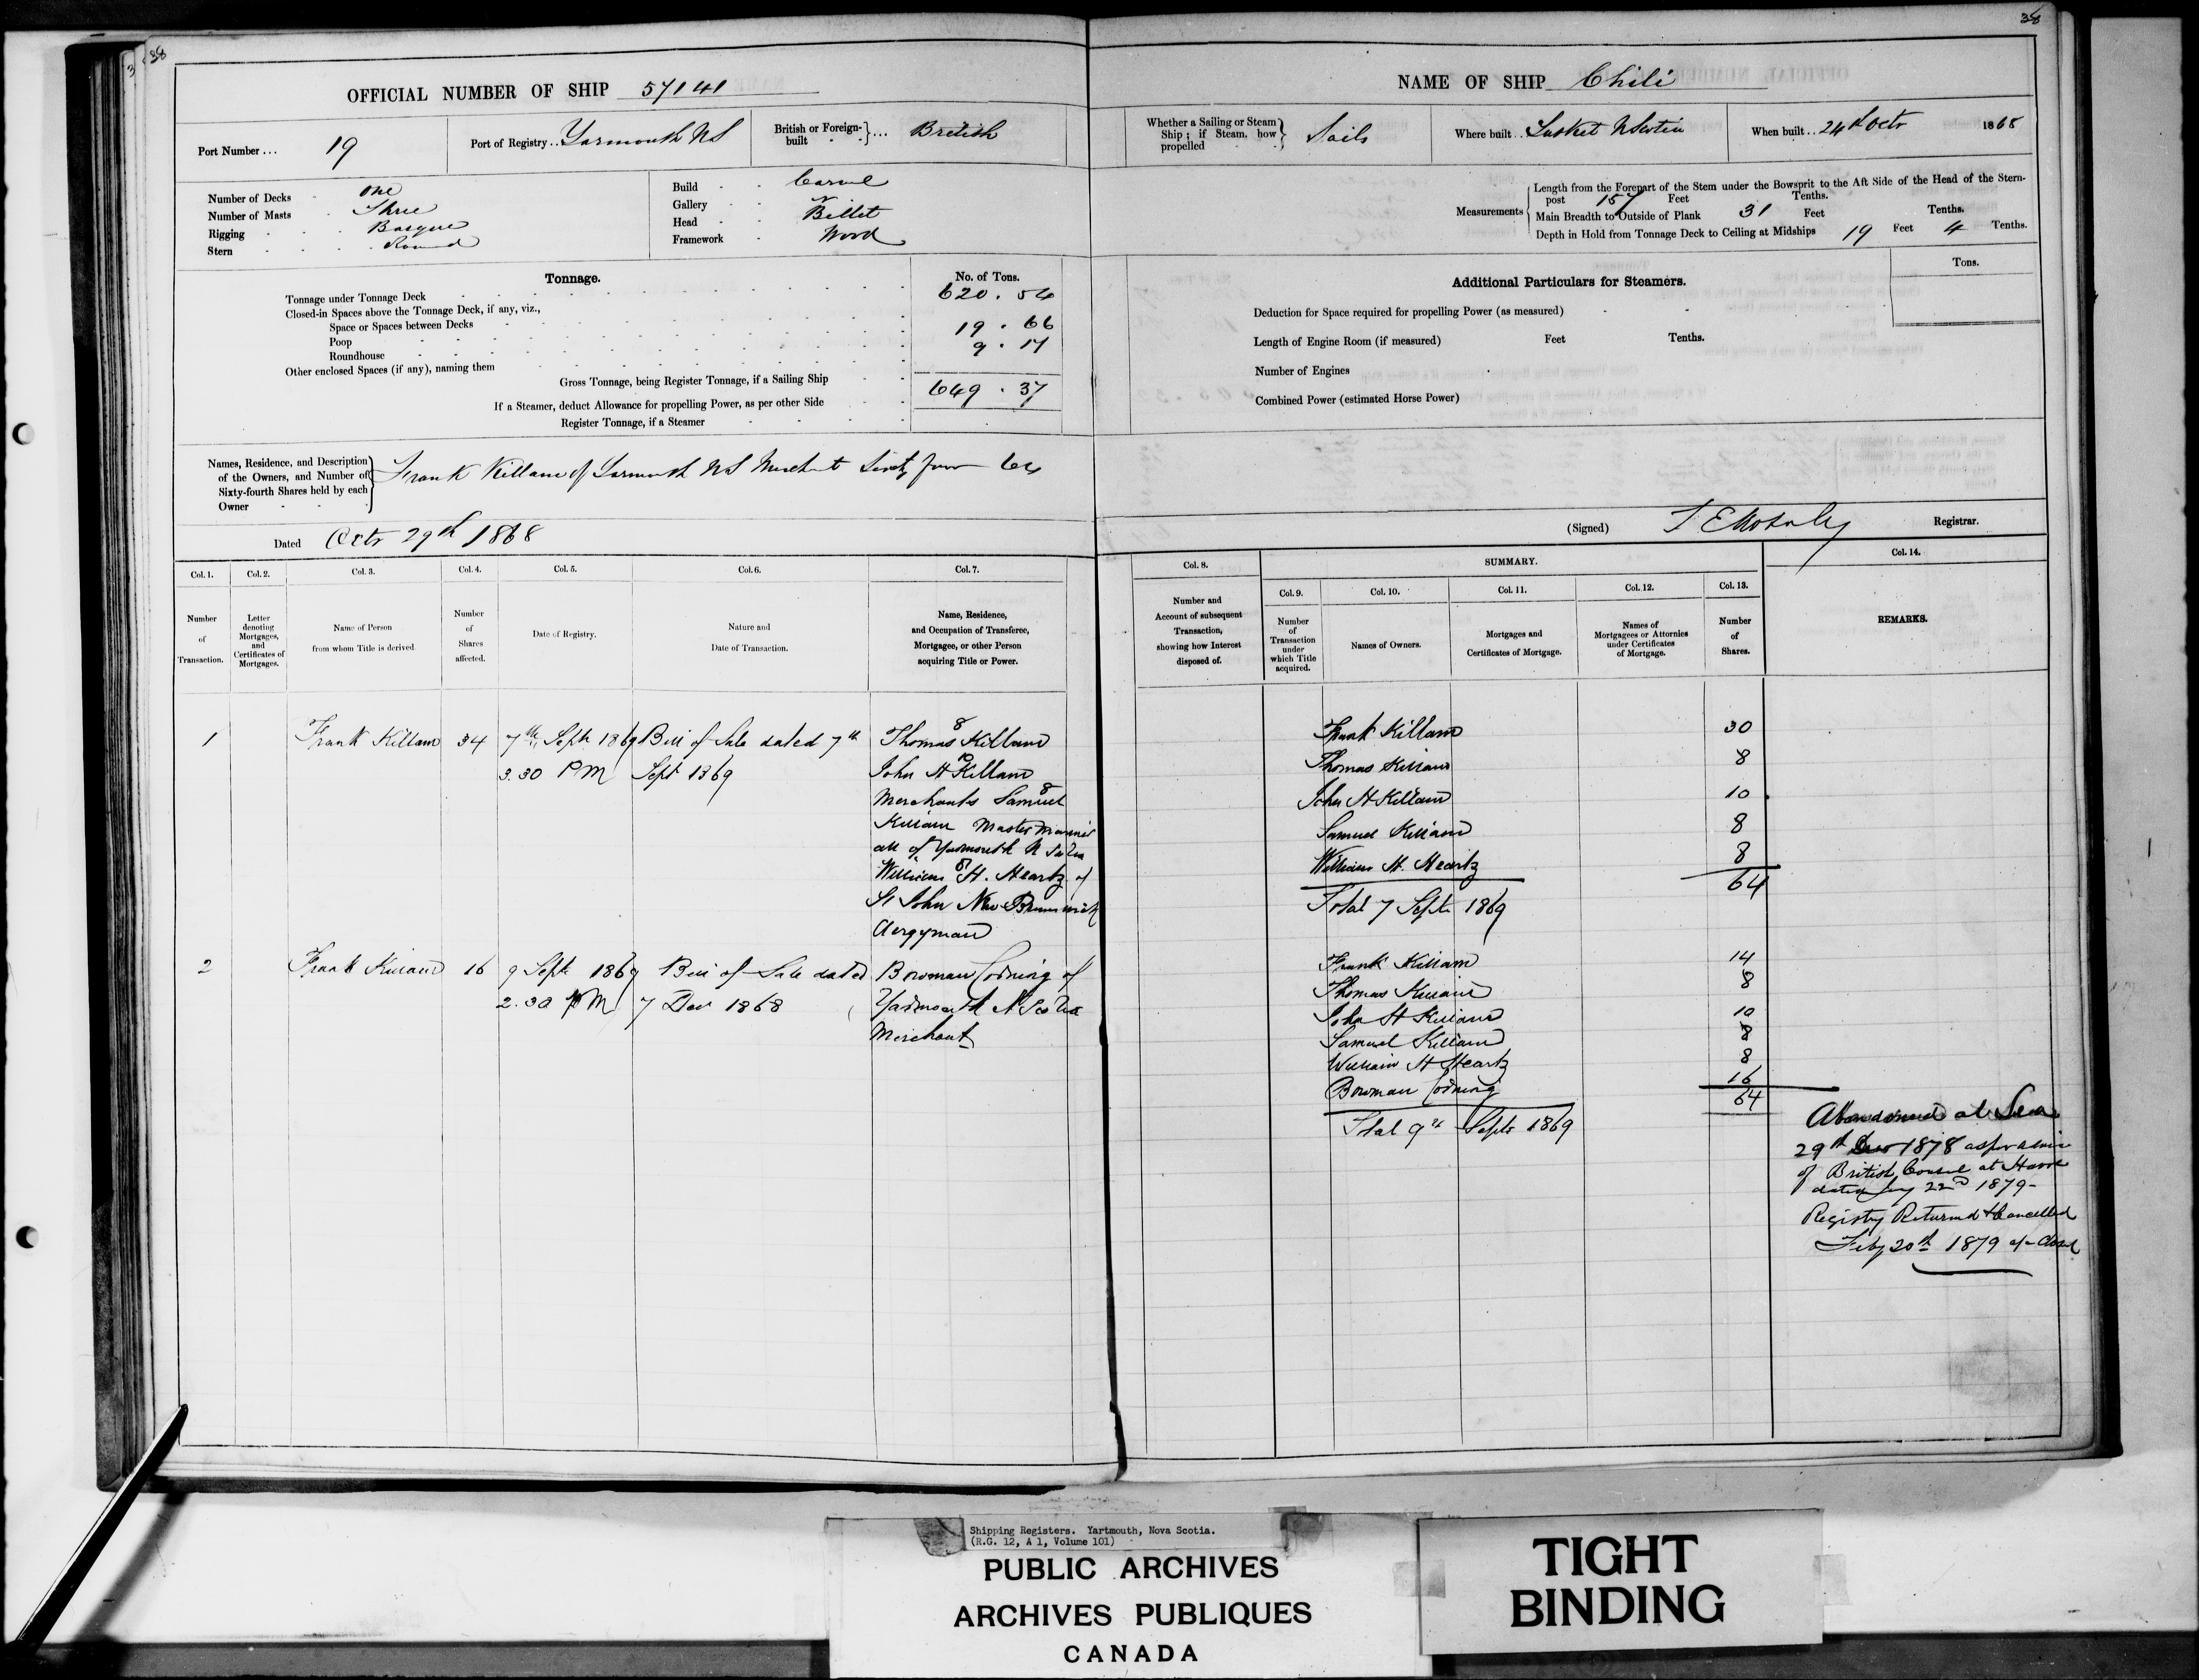 38
38
OFFICIAL NUMBER OF SHIP 57141
NAME OF SHIP Chili
Port Number ... 19
Port of Registry .. Yarmouth NS
British or Foreign-built }... British
Whether a Sailing or Steam Ship; if Steam, how propelled } Sails
Where built .. Tusket N Scotia
When built .. 24th Octr 1868
Number of Decks - One
Number of Masts - Three
Rigging - Barque
Stern - Round
Build - Carvel
Gallery -
Head - Billet
Framework - Wood
Measurements { Length from the Forepart of the Stem under the Bowsprit to the Aft Side of the Head of the Stern-
post 157 Feet Tenths.
Main Breadth to Outside of Plank 31 Feet Tenths.
Depth in Hold from Tonnage Deck to Ceiling at Midships 19 Feet 4 Tenths.
Tonnage. No. of Tons.
Tonnage under Tonnage Deck 620.54
Closed-in Spaces above the Tonnage Deck, if any, viz.,
Space or Spaces between Decks
Poop 19.66
Roundhouse 9.17
Other enclosed Spaces (if any), naming them
Gross Tonnage, being Register Tonnage, if a Sailing Ship 649.37
If a Steamer, deduct Allowance for propelling Power, as per other Side
Register Tonnage, if a Steamer
Additional Particulars for Steamers. Tons.
Deduction for Space required for propelling Power (as measured)
Length of Engine Room (if measured) Feet Tenths.
Number of Engines
Combined Power (estimated Horse Power)
Names, Residence, and Description
of the Owners, and Number of
Sixty-fourth Shares held by each
Owner
Frank Killam of Yarmouth NS Merchant Sixty four 64
Dated Octr 29th 1868
(Signed) Registrar.
Col. 1. Col. 2. Col. 3. Col. 4. Col. 5. Col. 6. Col. 7.
Number of Transaction.
Letter denoting Mortgages, and Certificates of Mortgages.
Name of Person from whom Title is derived.
Number of Shares affected.
Date of Registry.
Nature and Date of Transaction.
Name, Residence, and Occupation of Transferee, Mortgagee, or other Person acquiring Title or Power.
Col. 8. SUMMARY. Col. 14.
Col. 9. Col. 10. Col. 11. Col. 12. Col. 13.
Number and Account of subsequent Transaction, showing how Interest disposed of.
Number of Transaction under which Title acquired.
Names of Owners.
Mortgages and Certificates of Mortgage.
Names of Mortgagees or Attornies under Certificates of Mortgage.
Number of Shares.
REMARKS.
1 Frank Killam 34 7th Sept 1869 Bill of Sale dated 7th
3.30 PM Sept 1869
8
Thomas Killam
10
John H Killam
8
Merchants Samuel
Killam Master Mariner
all of Yarmouth N Scotia
8
William H. Heartz of
St John New Brunswick
Clergyman
2 Frank Killam 16 9 Sept 1869 Bill of Sale dated
2.30 PM 7 Dec 1868
Bowman Corning of
Yarmouth N Scotia
Merchant
Frank Killam 30
Thomas Killam 8
John H Killam 10
Samuel Killam 8
William H. Heartz 8
64
Total 7 Sept 1869
Frank Killam 14
Thomas Killam 8
John H Killam 10
Samuel Killam 8
William H Heartz 8
Bowman Corning 16
64
Total 9th Sept 1869
Abandoned at Sea
29th Dec 1878 as per advice
of British Consul at Havre
dated Jany 22nd 1879-
Registry Returned & Cancelled
Feby 20th 1879
Shipping Registers. Yartmouth, Nova Scotia.
(R.G. 12, A 1, Volume 101)
PUBLIC ARCHIVES
ARCHIVES PUBLIQUES
CANADA
TIGHT
BINDING